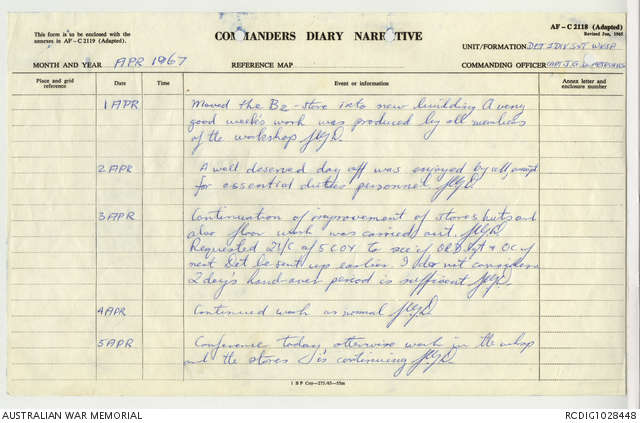 This form is to be enclosed with the
annexes in AF—C 2119 (Adapted).
COMMANDERS DIARY NARRATIVE
AF—C 2118 (Adapted)
Revised Jun, 1965
UNIT/FORMATION DET 1 DIV WKSP
MONTH AND YEAR APR 1967
REFERENCE MAP
COMMANDING OFFICER CAPT J.G.
Place and grid
reference
Event or information
Annex letter and
enclosure number
1 APR
Moved the B2-store into new building A very
good week's work was produced by all members
of the workshop
2 APR
A well deserved day off was enjoyed by all, except
for essential duties personnel
3 APR
Continuation of improvement of stores huts and
also floor work was carried out.
Requested 2I/C of 5 COY to see if ORD Sgt & OC of
next Det be sent up earlier. I do not consider
2 day's hand-over period is sufficient
4 APR
Continued work as normal
5 APR
Conference today otherwise work in the wksp
and the stores is continuing
AUSTRALIAN WAR MEMORIAL
RCDIG1028448